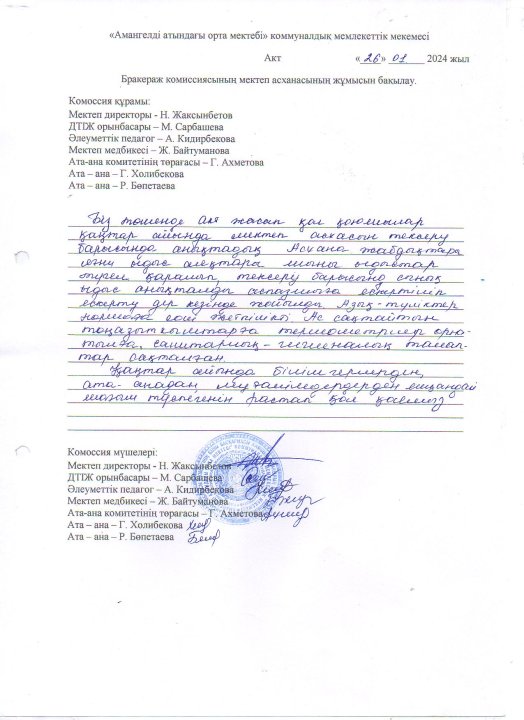 «Амангелді атындағы орта мектебі» коммуналдық мемлекеттік мекемесі
Акт «26» 01 2024 жыл
Бракераж комиссиясының мектеп асханасының жұмысын бақылау.
Комоссия құрамы:
Мектеп директоры - Н. Жаксынбетов
ДТІЖ орынбасары – М. Сарбашева
Әлеуметтік педагог – А. Кидирбекова
Мектеп медбикесі – Ж. Байтуманова
Ата-ана комитетінің төрағасы – Г. Ахметова
Ата – ана – Г. Холибекова
Ата – ана – Р. Бөпетаева
Біз төменде қол қоюшылар
қаңтар айында мектеп асхасын тексеру
барысында анықтадық Асхана жабдықтары
яғни ыдыс аяқтары ыдыстар
қаралып тексеру барысына сынық
ыдыс анықталды аспазшыға ескертілір
ескерту дер кезінде жойылды Азық-түліктер
нормаға сай жеткілікті Ас сақтайтын
тоңазытқыштарға термометрлер орна-
тылға, санитарлық-гигиеналық талап-
тар сақталған.
Қаңтар айында білімгерлерден,
ата-анадан, мұғалімдерден ешқандай
шағым түспегенін растап қол қоямыз
Комоссия мүшелері:
Мектеп директоры - Н. Жаксынбетов
ДТІЖ орынбасары – М. Сарбашева
Әлеуметтік педагог – А. Кидирбекова
Мектеп медбикесі – Ж. Байтуманова
Ата-ана комитетінің төрағасы – Г. Ахметова
Ата – ана – Г. Холибекова
Ата – ана – Р. Бөпетаева